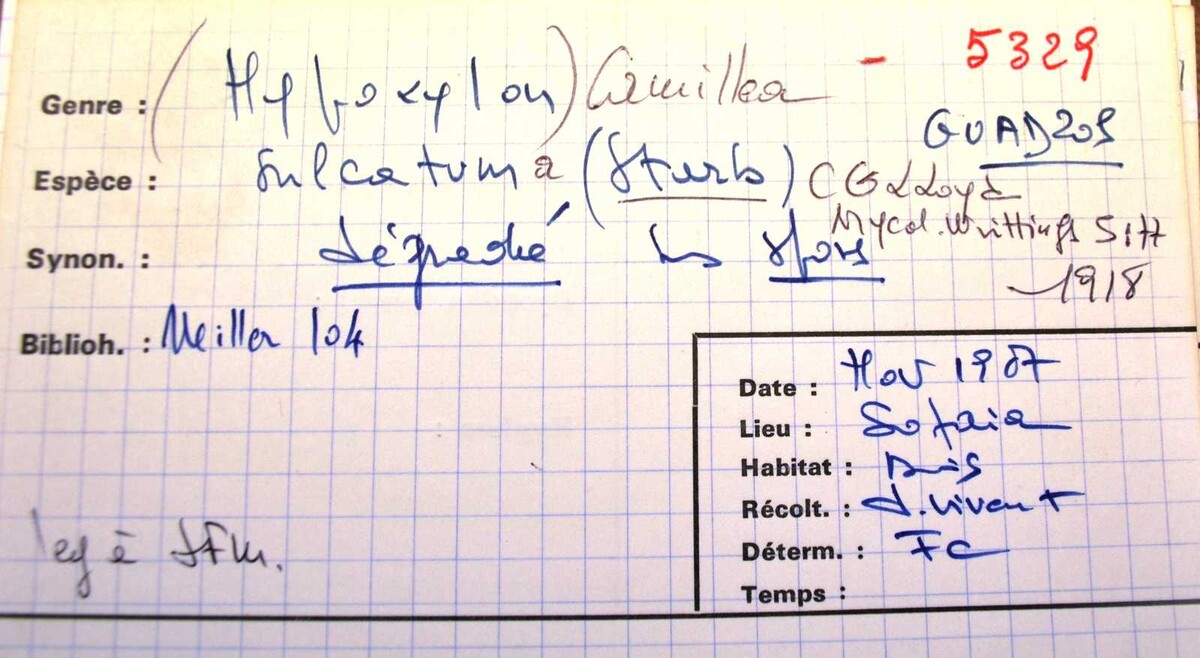 - 5329
Genre : (Hypoxylon) Camillea
GUAD 209
Espèce : sulcatum a (Sturb) CG LLoyd
Mycol. Writtings 5:
Synon. : spors
1918
Biblioh. : Meiller 104
Date : Nov 1987
Lieu : Sofaia
Habitat : Bois
Récolt. : J. Vivant
Déterm. : FC
Temps :
leg à